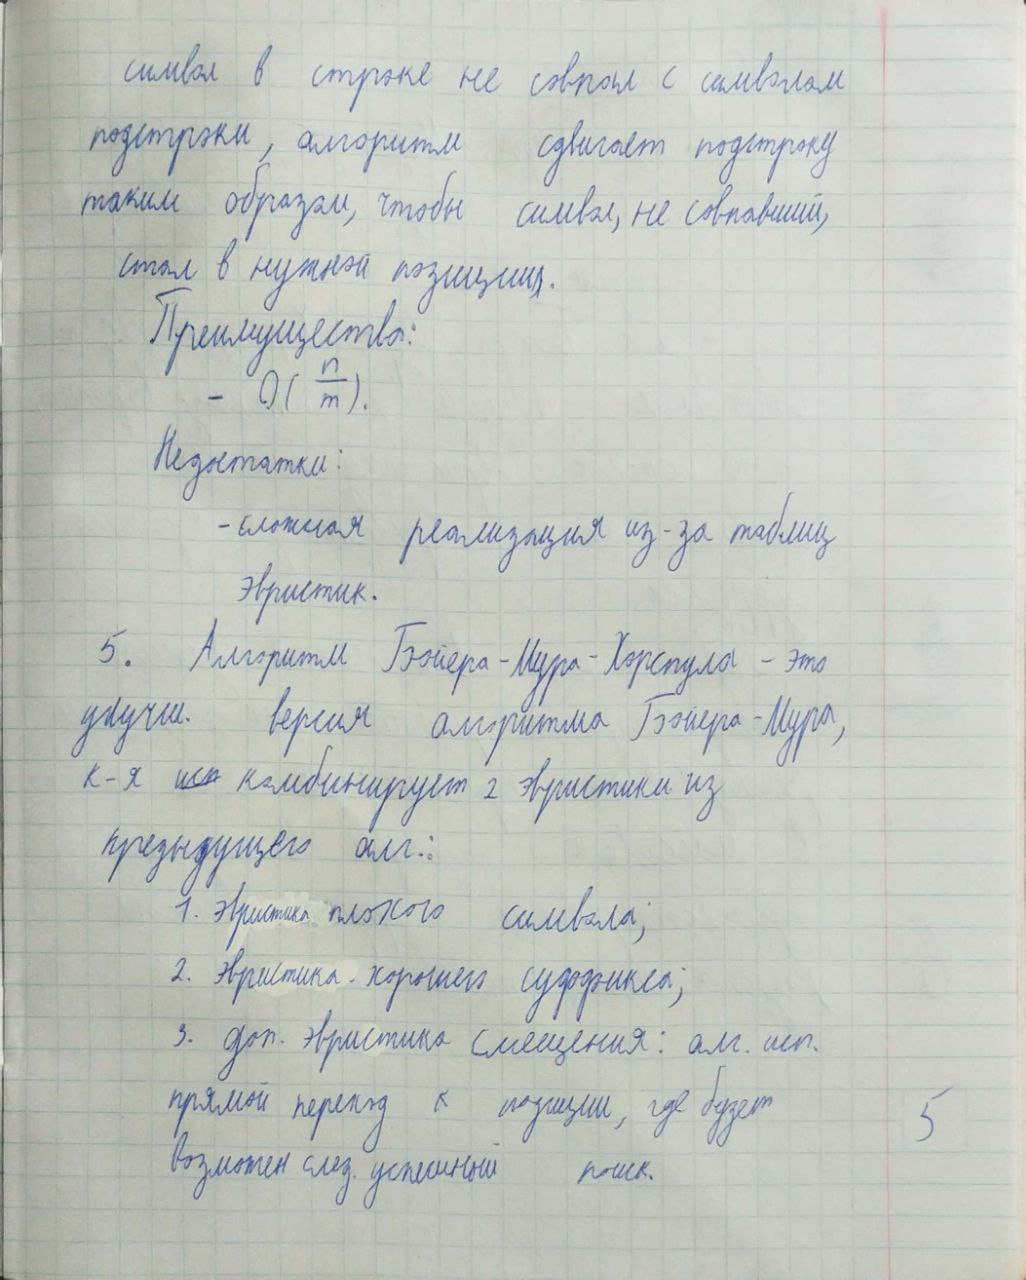 символ в строке не совпал с символом
подстроки, алгоритм сдвигает подстроку
таким образом, чтобы символ, не совпавший,
стал в нужной позиции.
Преимущества:
- O(n/m).
Недостатки:
- сложная реализация из-за таблиц
эвристик.
5. Алгоритм Бойера-Мура-Хорспула - это
улучш. версия алгоритма Бойера-Мура,
к-я комбинирует 2 эвристики из
предыдущего алг.:
1. эвристика плохого символа;
2. эвристика хорошего суффикса;
3. доп. эвристика смещения: алг. исп.
прямой переход к позиции, где будет
возможен след. успешный поиск.
5